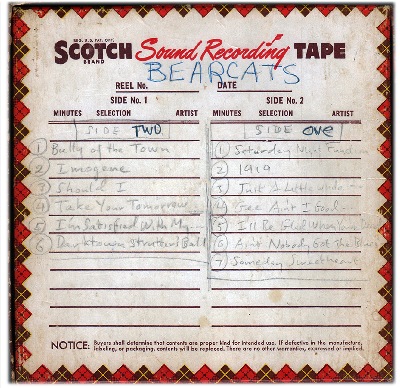 REG. U.S. PAT. OFF.
SCOTCH Sound Recording TAPE
BRAND
BEARCATS
REEL No. DATE
SIDE No. 1 SIDE No. 2
MINUTES SELECTION ARTIST MINUTES SELECTION ARTIST
SIDE TWO SIDE one
1 Bully of the Town 1 Saturday Night
2 Imogene 2 1919
3 Should I 3 Just A Little While
4 Take Your Tomorrow 4 Gee Ain't I Good
5 I'm Satisfied With My 5 I'll Be Glad When You
6 Darktown Strutters Ball 6 Ain't Nobody Got The Blues
7 Someday Sweetheart
NOTICE: Buyers shall determine that contents are proper kind for intended use. If defective in the manufacture,
labeling, or packaging, contents will be replaced. There are no other warranties, expressed or implied.